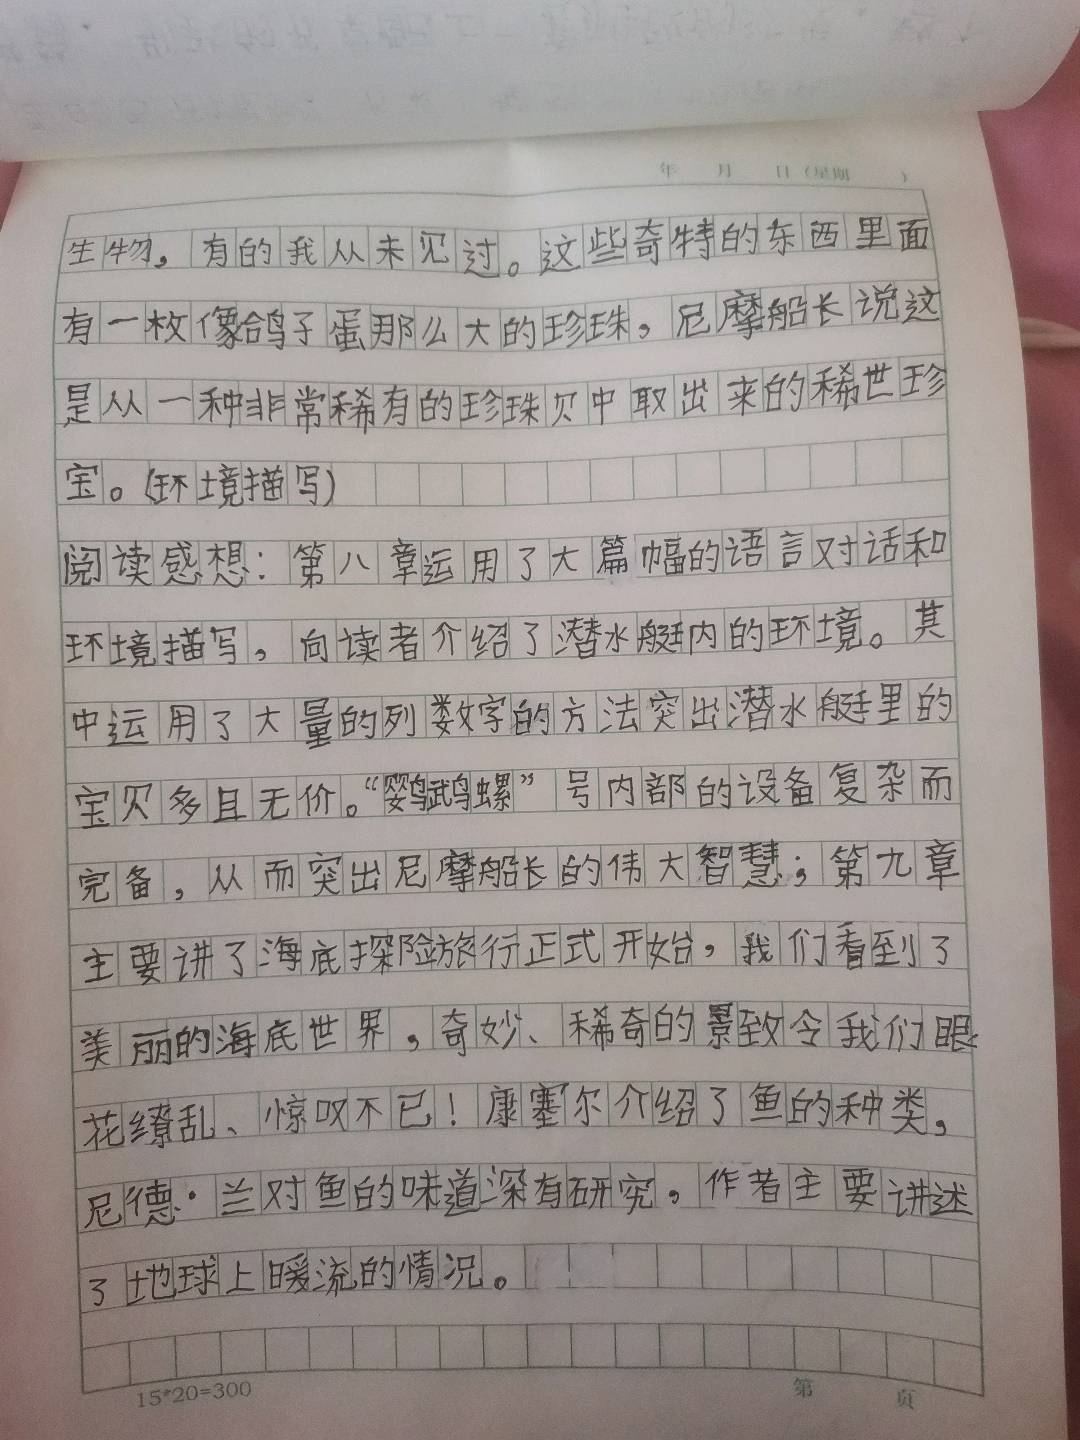 年 月 日（星期 ）
生物，有的我从未见过。这些奇特的东西里面
有一枚像鸽子蛋那么大的珍珠，尼摩船长说这
是从一种非常稀有的珍珠贝中取出来的稀世珍
宝。（环境描写）
阅读感想：第八章运用了大篇幅的语言对话和
环境描写，向读者介绍了潜水艇内的环境。其
中运用了大量的列数字的方法突出潜水艇里的
宝贝多且无价。“鹦鹉螺”号内部的设备复杂而
完备，从而突出尼摩船长的伟大智慧；第九章
主要讲了海底探险旅行正式开始，我们看到了
美丽的海底世界，奇妙、稀奇的景致令我们眼
花缭乱、惊叹不已！康塞尔介绍了鱼的种类，
尼德·兰对鱼的味道深有研究，作者主要讲述
了地球上暖流的情况。
15*20=300 第 页